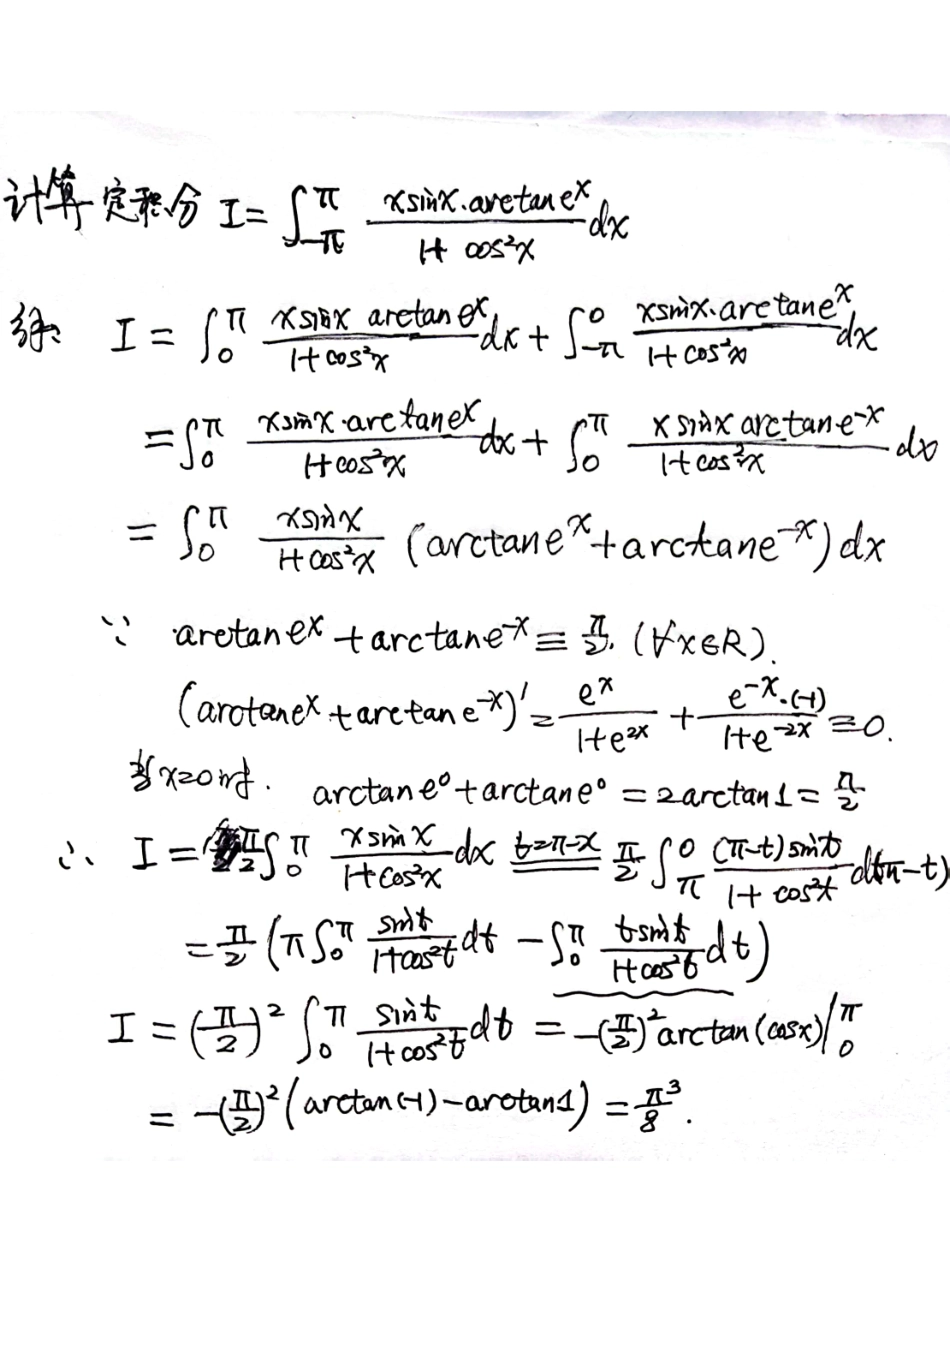 计算定积分 I=∫_{-π}^{π} \frac{x sinx·arctan e^x}{1+cos²x} dx
解: I = ∫_0^π \frac{x sinx arctan e^x}{1+cos²x} dx + ∫_{-π}^0 \frac{x sinx·arctan e^x}{1+cos²x} dx
= ∫_0^π \frac{x sinx·arctan e^x}{1+cos²x} dx + ∫_0^π \frac{x sinx arctan e^{-x}}{1+cos²x} dx
= ∫_0^π \frac{x sinx}{1+cos²x} (arctan e^x + arctan e^{-x}) dx
∵ arctan e^x + arctan e^{-x} ≡ \frac{π}{2}. (∀x∈R).
(arctan e^x + arctan e^{-x})' = \frac{e^x}{1+e^{2x}} + \frac{e^{-x}·(-1)}{1+e^{-2x}} ≡ 0.
当x=0时. arctan e^0 + arctan e^0 = 2arctan1 = \frac{π}{2}
∴ I = \frac{π}{2} ∫_0^π \frac{x sinx}{1+cos²x} dx \overset{t=π-x}{=} \frac{π}{2} ∫_π^0 \frac{(π-t) sint}{1+cos²t} d(π-t)
= \frac{π}{2} (π∫_0^π \frac{sint}{1+cos²t} dt - ∫_0^π \frac{t sint}{1+cos²t} dt)
I = (\frac{π}{2})² ∫_0^π \frac{sint}{1+cos²t} dt = -(\frac{π}{2})² arctan(cosx)|_0^π
= -(\frac{π}{2})² (arctan(-1) - arctan1) = \frac{π³}{8}.